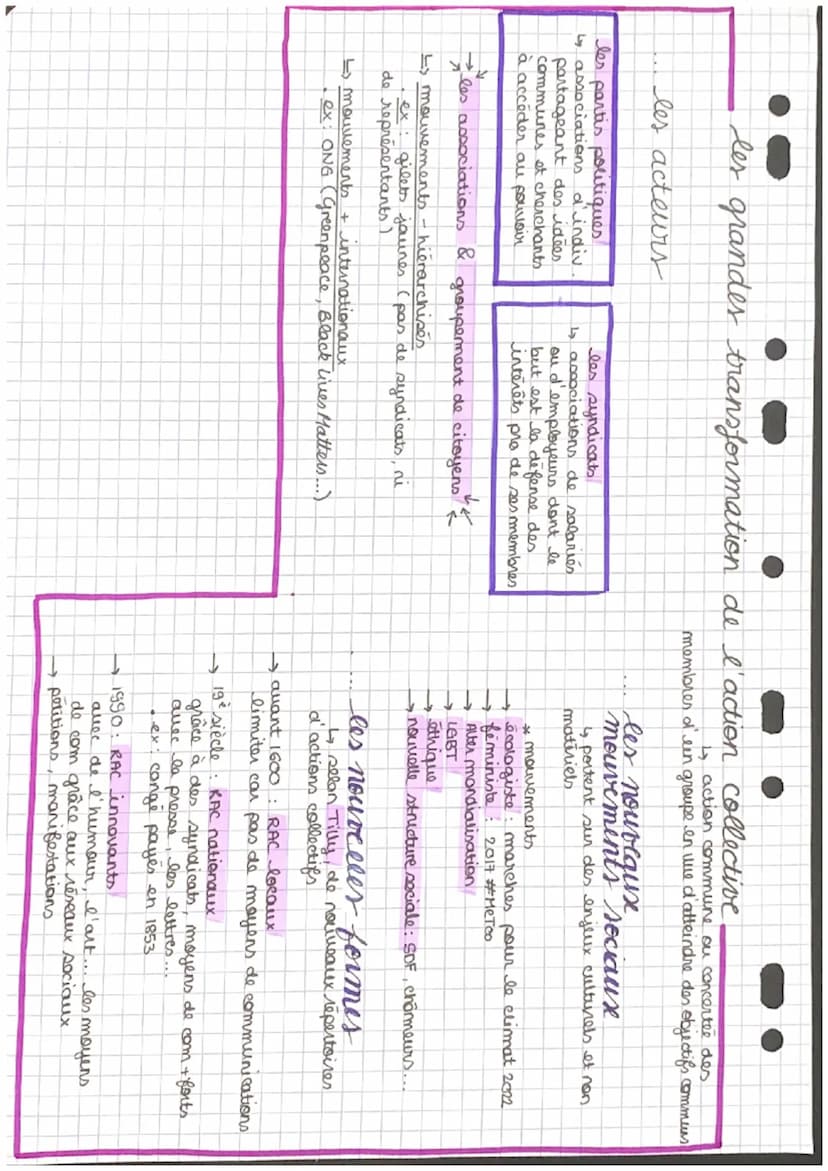 les grandes transformation de l'action collective
↳ action commune ou concertée des
membres d'un groupe en vue d'atteindre des objectifs communs
... les acteurs
les partis politiques
↳ associations d'indiv.
partageant des idées
communes et cherchants
à accéder au pouvoir
les syndicats
↳ associations de salariés
ou d'employeurs dont le
but est la défense des
intérêts pro de ses membres
→ les associations & groupement de citoyens ←
↳ mouvements - hiérarchisés
. ex : gilets jaunes (pas de syndicats, ni
de représentants)
↳ mouvements + internationaux
. ex : ONG (Greenpeace, Black Lives Matters...)
... les nouveaux
mouvements sociaux
↳ portent sur des enjeux culturels et non
matériels
* mouvements
→ écologiste : marches pour le climat 2022
→ féministe : 2017 #MeToo
→ Alter mondialisation
→ LGBT
→ éthique
→ nouvelle structure sociale : SDF, chômeurs...
... les nouvelles formes
↳ selon Tilly, de nouveaux répertoires
d'actions collectifs
→ avant 1600 : RAC locaux
limités car pas de moyens de communications
→ 19è siècle : RAC nationaux
grâce à des syndicats, moyens de com + forts
avec la presse, les lettres...
. ex : congé payés en 1853
→ 1990 : RAC innovants
avec de l'humour, l'art... les moyens
de com grâce aux réseaux sociaux
→ pétitions, manifestations